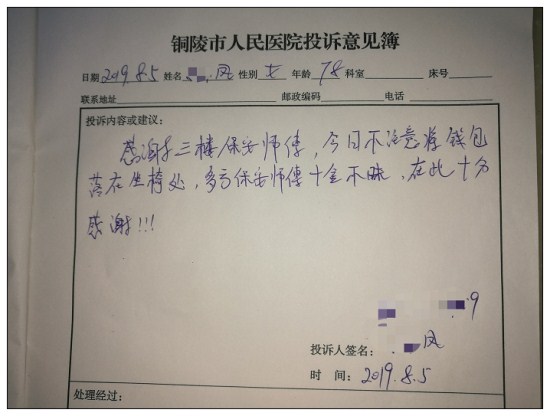 铜陵市人民医院投诉意见簿
日期2019.8.5 姓名 凤 性别 女 年龄 78 科室 床号
联系地址 邮政编码 电话
投诉内容或建议:
感谢三楼保安师傅,今日不注意将钱包
落在坐椅处,多亏保安师傅十金不昧,在此十分
感谢!!!
9
投诉人签名: 凤
时 间: 2019.8.5
处理经过: